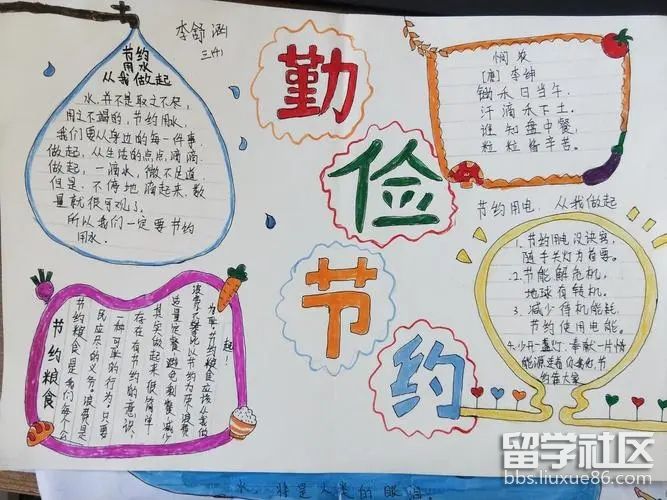 李舒涵
三(1)
节约
用水
从我做起
水,并不是取之不尽,
用之不竭的,节约用水,
我们要从身边的每一件事
做起,从生活的点点滴滴
做起,一滴水,微不足道
但是,不停地滴起来,数
量就很可观了.
所以我们一定要节约
用水.
勤
俭
节
约
悯农
[唐] 李绅
锄禾日当午,
汗滴禾下土.
谁知盘中餐,
粒粒皆辛苦.
节约用电,从我做起
1.节约用电没诀窍,
随手关灯为首要。
2.节能解危机,
地球有转机。
3.减少待机能耗,
节约使用电能。
4.少开一盏灯,奉献一片情
能源连着你我他,节
约靠大家
节约粮食
节约粮食是我们每个公
民应尽的义务。浪费是
一种可耻的行为,只要
存在有节约的意识,
其实做起来很简单
适量定餐,避免剩餐,减少
浪费,
节约粮食应该从我做
起!
水 将是人类的眼泪
留学社区
bbs.liuxue86.com